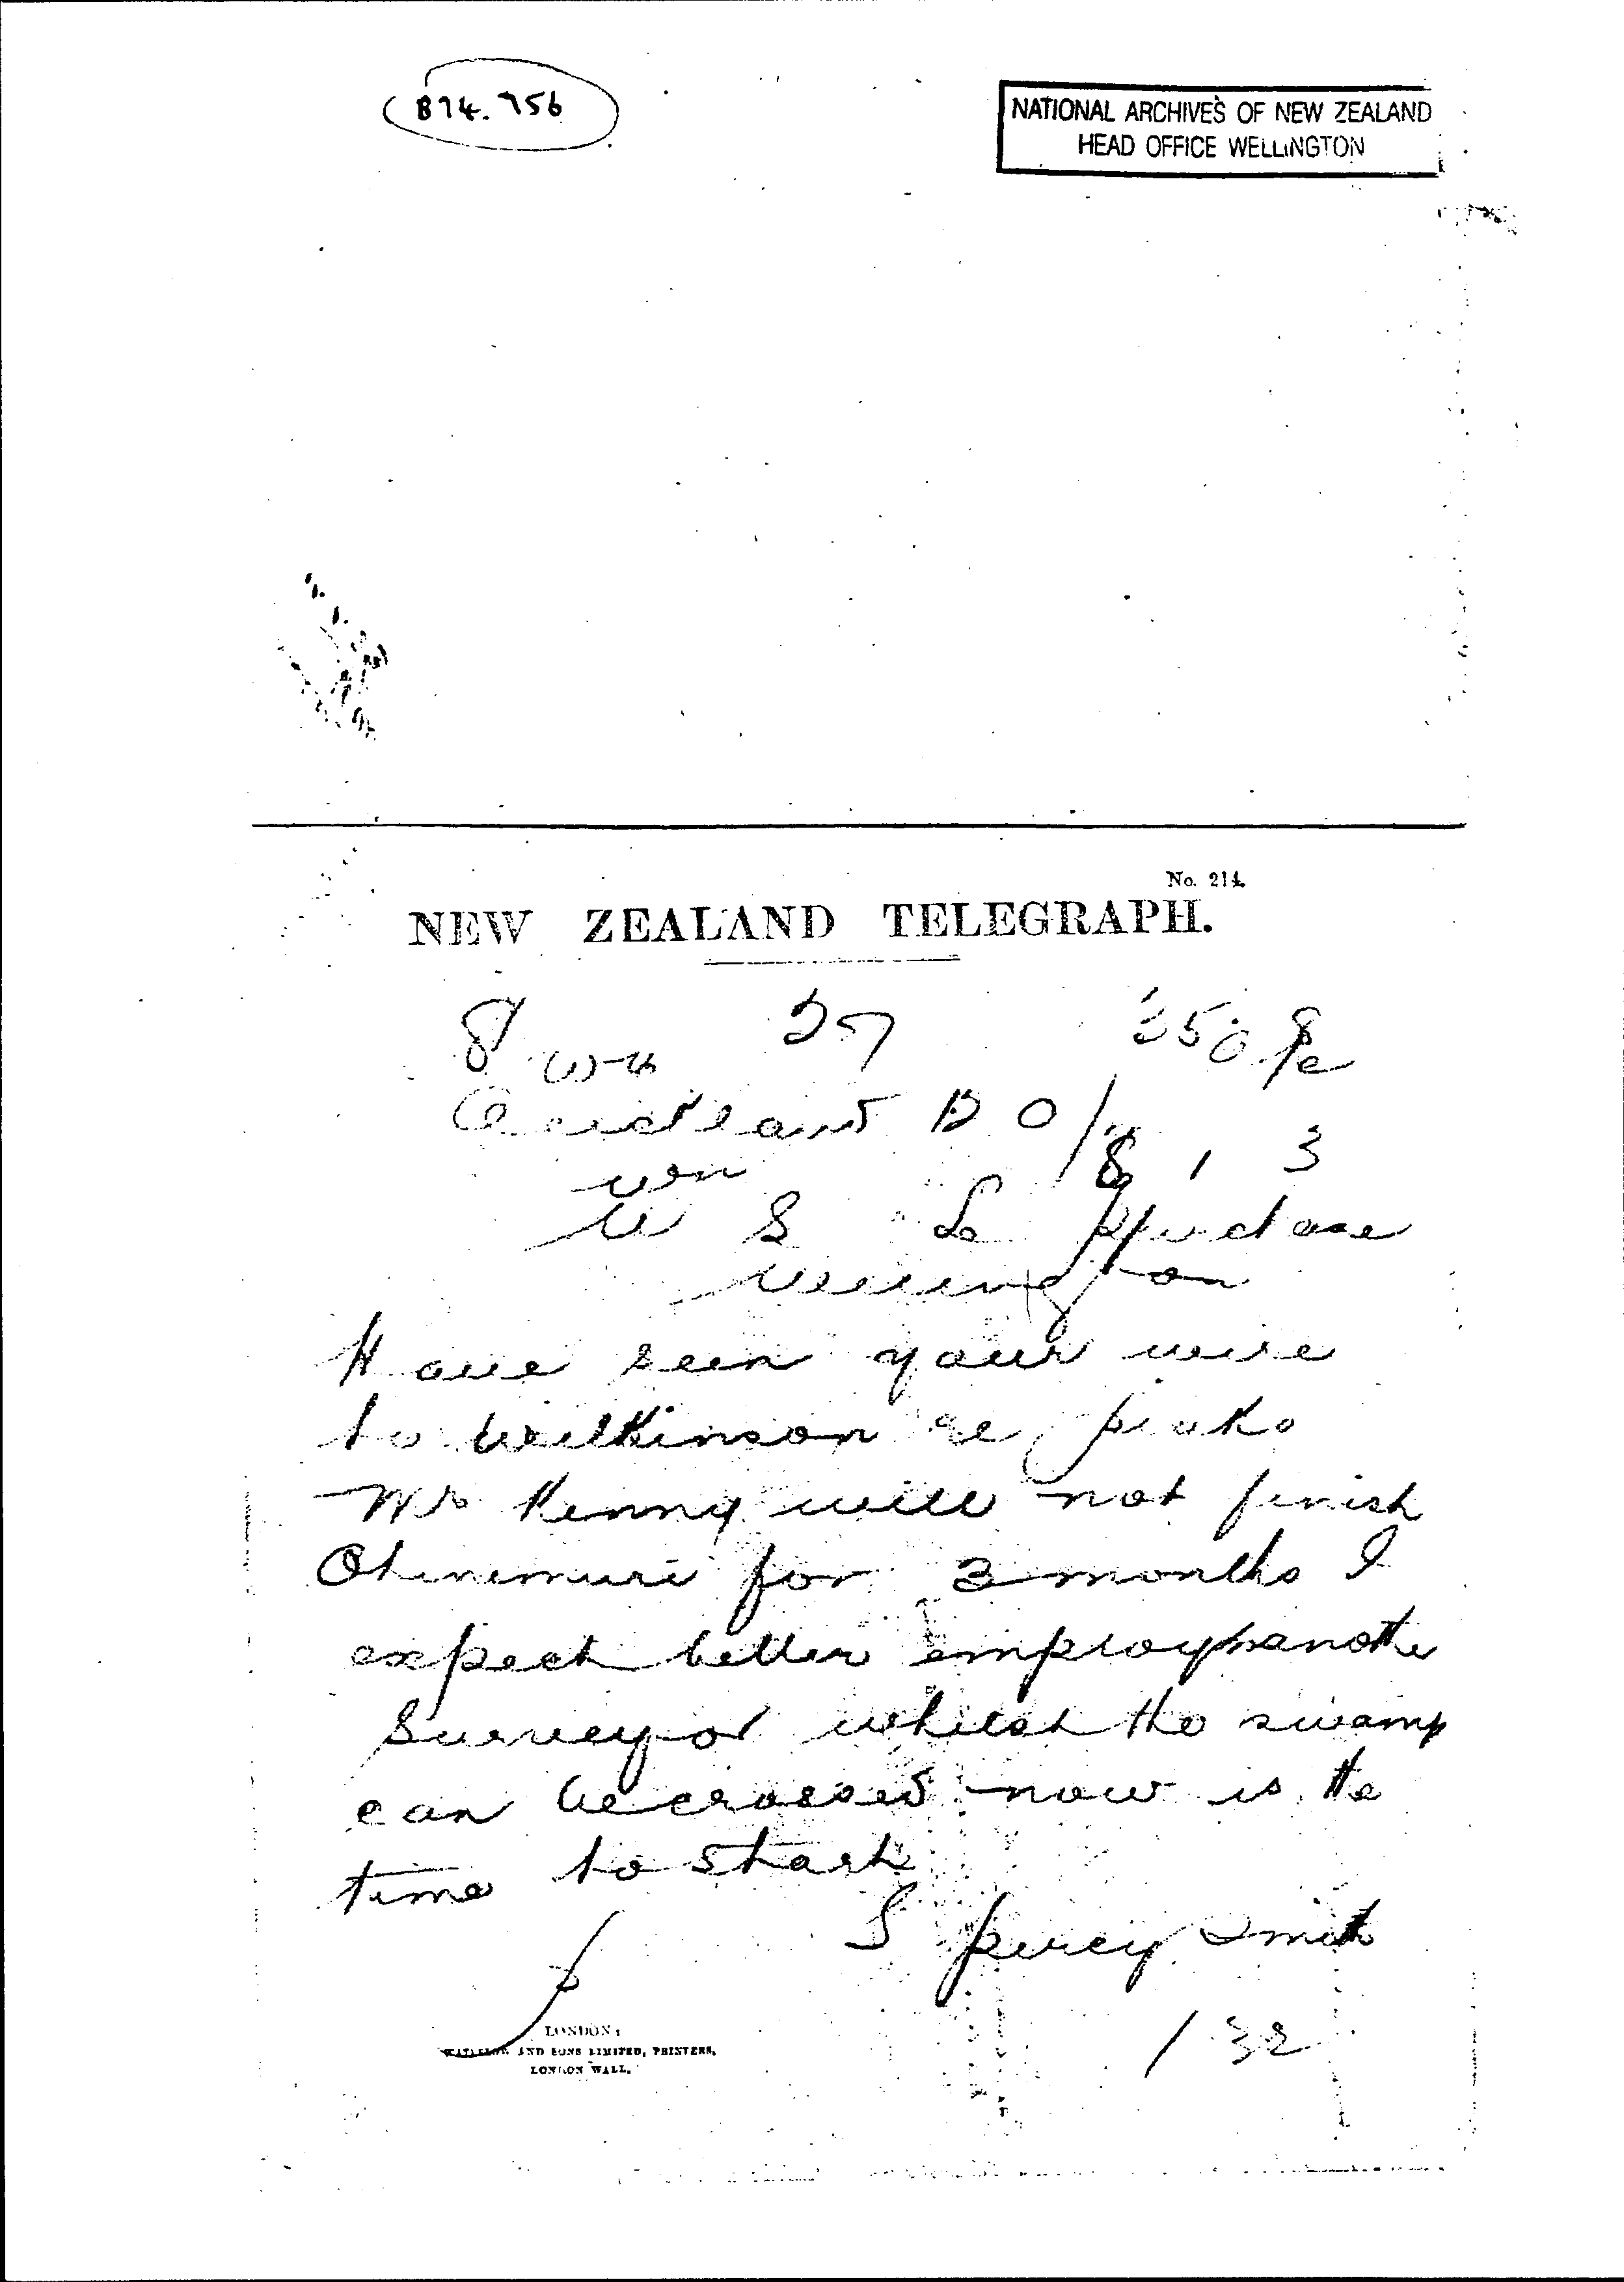 B74.756
NATIONAL ARCHIVES OF NEW ZEALAND
HEAD OFFICE WELLINGTON
No. 214.
NEW ZEALAND TELEGRAPH.
8 27
Auckland
8 1 3
U S L Purchase
Wellington
Have seen your wire
to Wilkinson re piako
Mr Kenny will not finish
Ohinemuri for 3 months I
expect better employ another
Surveyor whilst the swamp
can be crossed now is the
time to start
S percy Smith
1 32
LONDON:
WATERLOW AND SONS LIMITED, PRINTERS,
LONDON WALL.